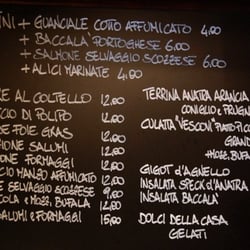 INI + GUANCIALE COTTO AFFUMICATO 4.80
+ BACCALÀ PORTOGHESE 6.00
+ SALMONE SELVAGGIO SCOZZESE 6.00
+ ALICI MARINATE 4.80
RE AL COLTELLO 12.00
CIO DI POLIPO 12.00
DE FOIE GRAS
IONE SALUMI 12.00
ONE FORMAGGI 12.00
CIO MANZO AFFUMICATO 12.00
E SELVAGGIO SCOZZESE
COLA E MOZZ. BUFALA 12.00
SALUMI E FORMAGGI 15.00
TERRINA ANATRA ARANCIA
CONIGLIO E PRUGN
CULATTA "VESCONI" PIATTO
GRAND
+ MOZZ. BUF
GIGOT D'AGNELLO
INSALATA SPECK D'ANATRA
INSALATA BACCALÀ
DOLCI DELLA CASA
GELATI